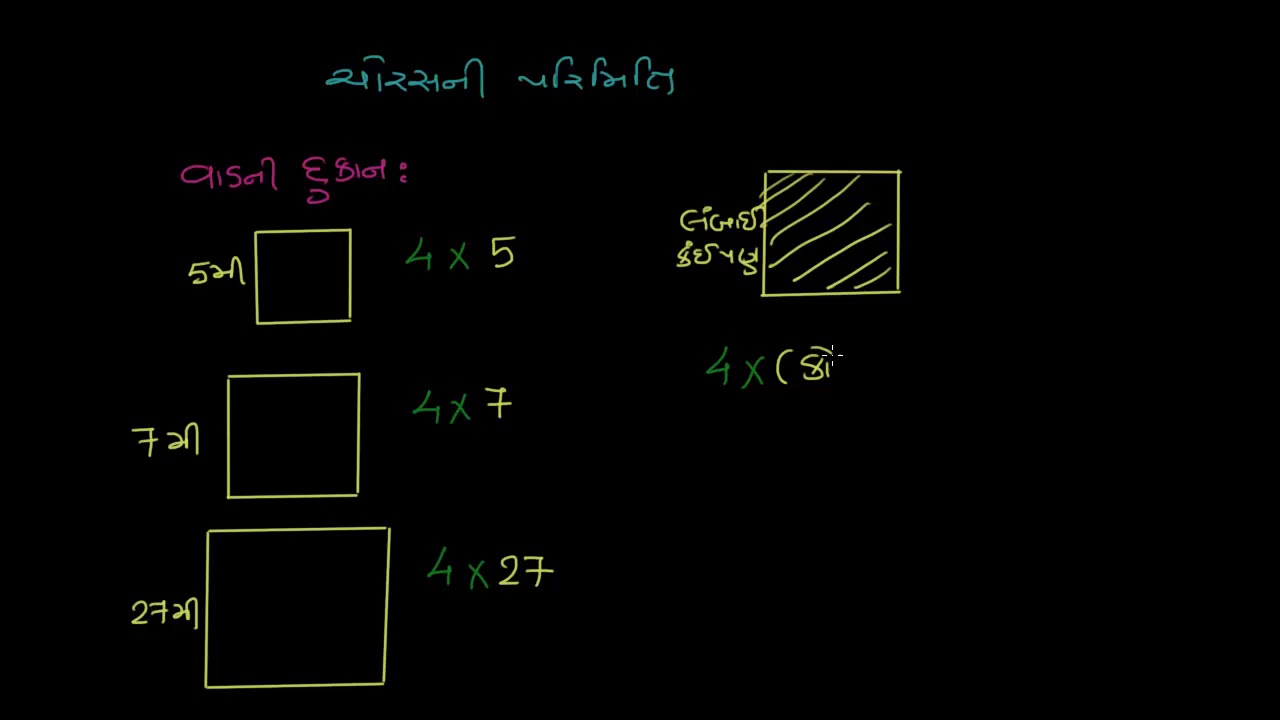 ચોરસની પરિમિતિ
વાડની દુકાન:
5મી
4 x 5
7મી
4 x 7
27મી
4 x 27
લંબાઈ
કંઈપણ
4 x (કો